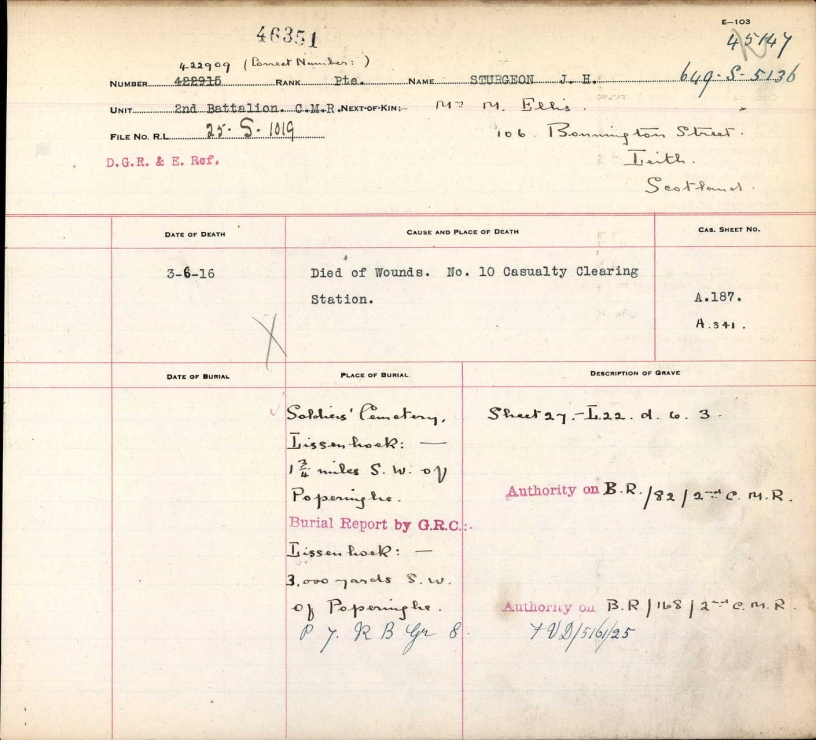 E—103
46351
45147
422909 (Correct Number: )
NUMBER 422915 RANK Pte. NAME STURGEON J. H. 649-S-5136
UNIT 2nd Battalion. C.M.R. NEXT-OF-KIN:- Mrs M. Ellis.
FILE NO. R.L. 25-S-1019 106. Bonnington Street.
D.G.R. & E. Ref. Leith.
Scotland.
DATE OF DEATH CAUSE AND PLACE OF DEATH CAS. SHEET NO.
3-6-16 Died of Wounds. No. 10 Casualty Clearing
Station. A.187.
A.341.
DATE OF BURIAL PLACE OF BURIAL DESCRIPTION OF GRAVE
Soldiers' Cemetery, Sheet 27.-L.22.d.6.3.
Lissenhoek: —
1 3/4 miles S.W. of
Poperinghe. Authority on B.R./82/2nd C.M.R.
Burial Report by G.R.C.:-
Lissenhoek: —
3,000 yards S.W.
of Poperinghe. Authority on B.R/168/2nd C.M.R.
P 7. R B Gr 8. VD/5161/25